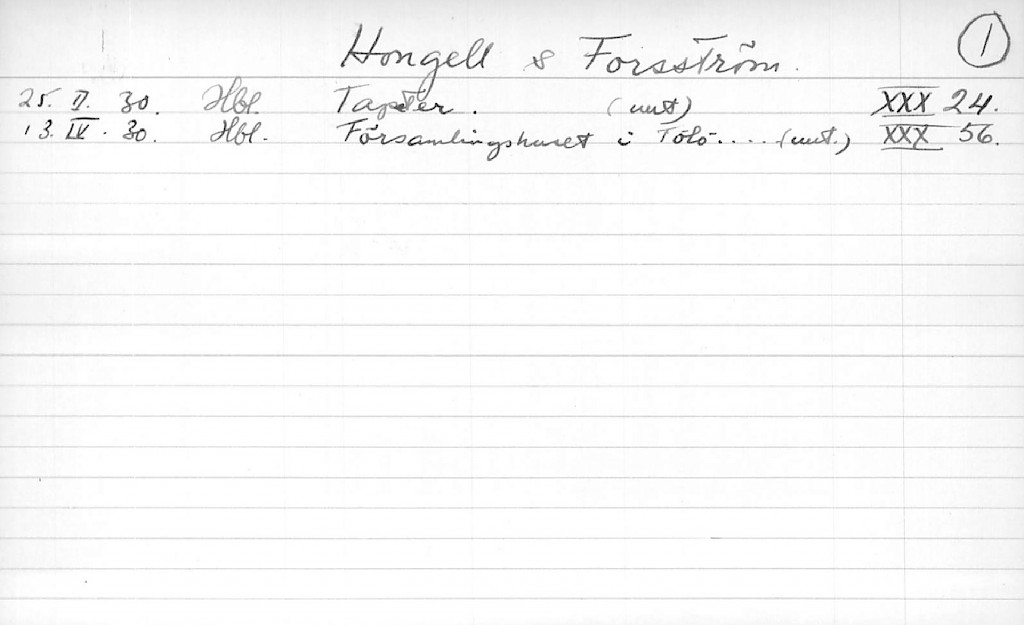 Hongell & Forsström. 1
25. II. 30. Hbl. Tapeter. (uut) XXX 24.
13. IV. 30. Hbl. Församlingshuset i Tölö.... (uut.) XXX 56.